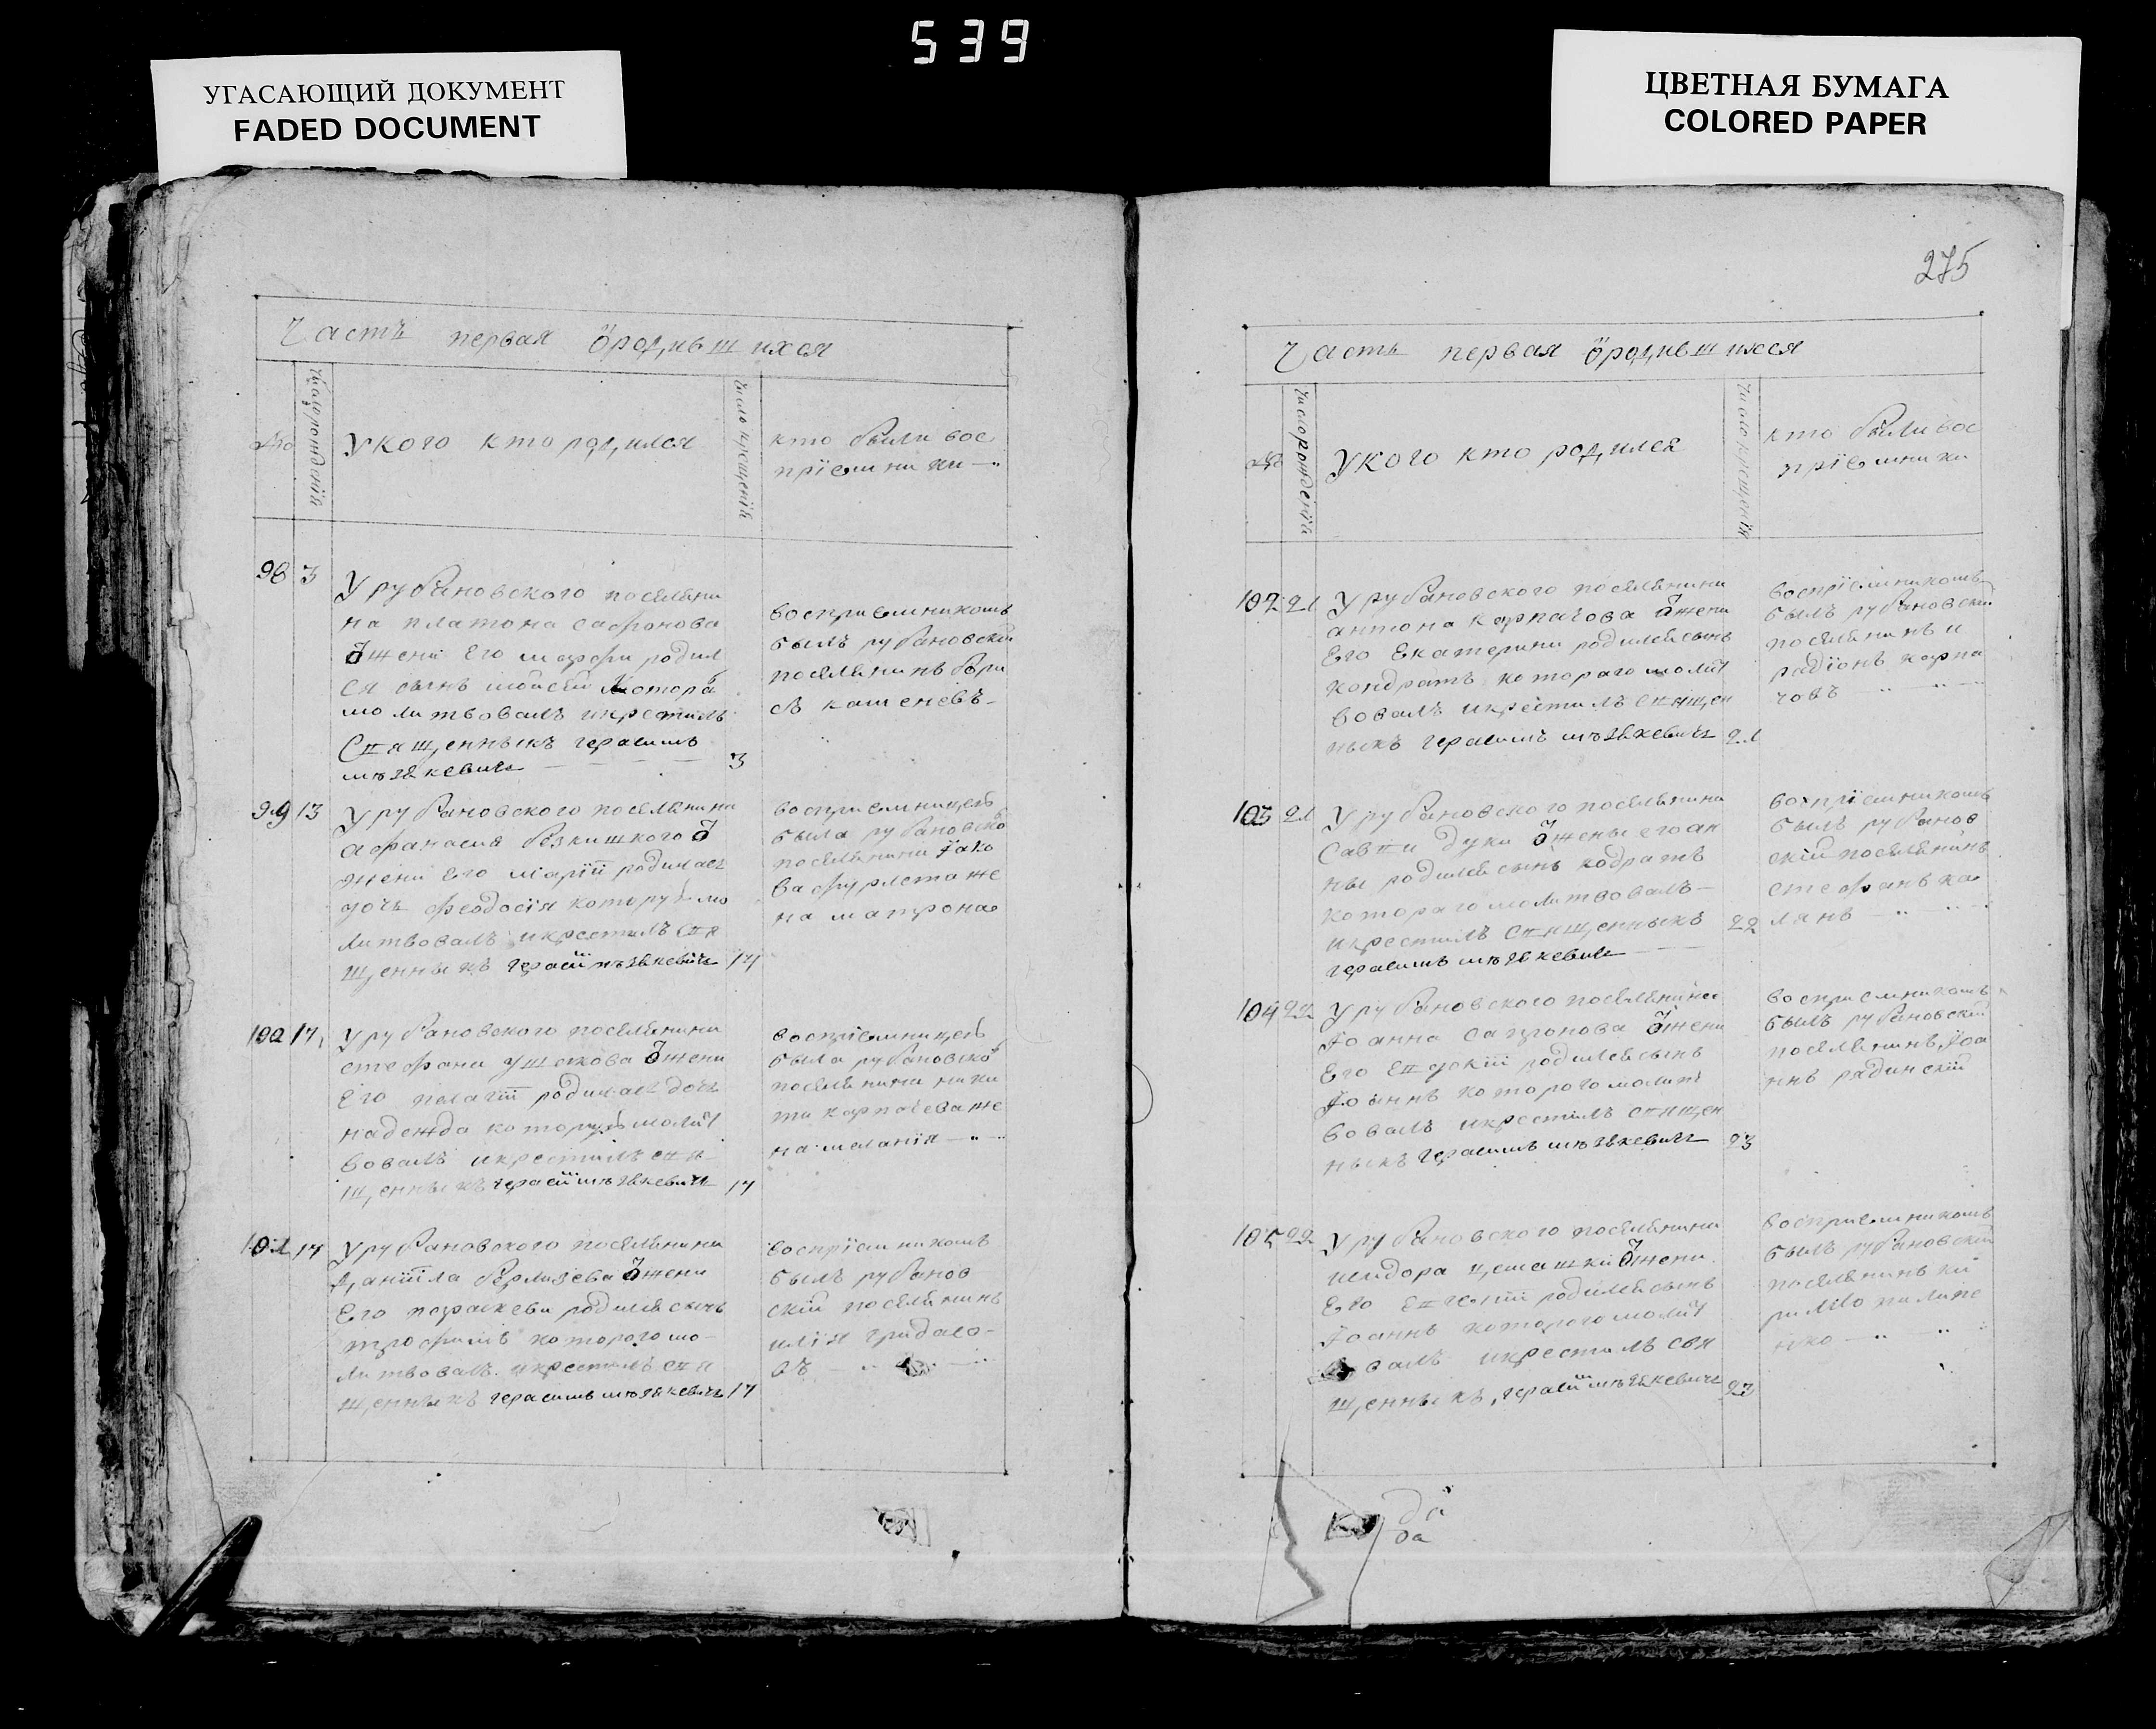 539
УГАСАЮЩИЙ ДОКУМЕНТ
FADED DOCUMENT
ЦВЕТНАЯ БУМАГА
COLORED PAPER
Часть первая ѿродившихся
№
Число рожденія
У кого кто родился
Число крещенія
кто были вос
пріемники
98 3
У рубановского поселяни
на платона сафонова
ѿ жени Его марфи родил
ся сынъ моисей котора
молитвовалъ икрестилъ
Священникъ герасимъ
3
восприемникомъ
былъ рубановский
поселянинъ бори
съ
99 13
У рубановского поселянина
афанасия ѿ
жени Его маріи родилась
дочь феодосія которую мо
литвовалъ икрестилъ свя
щенникъ герасим
14
восприемницею
была рубановско
поселянина Іако
ва же
на матрона
100 17
У рубановского поселянина
стефана ѿ жени
Его пелагіи родилась дочь
надежда которую молит
вовалъ икрестилъ свя
щенникъ герасим
17
воспріемницею
была рубановско
поселянина ники
ти карпачева же
на меланія
101 17
У рубановского поселянина
даніила ѿ жени
Его параскеви родился сынъ
трофимъ которого мо
литвовалъ икрестилъ свя
щенникъ герасимъ
17
воспріемникомъ
былъ рубанов
скій поселянинъ
илія гридасо
въ
275
Часть первая ѿродившихся
№
Число рожденія
У кого кто родился
Число крещенія
кто были вос
пріемники
102 21
У рубановского поселянина
антона карпачова ѿ жени
Его Екатерини родился сынъ
кондратъ которагомолит
вовалъ икрестилъ священ
никъ герасимъ
21
воспріемникомъ
былъ рубановский
поселянинъ и
радіонъ карпа
човъ
103 21
У рубановского поселянина
Саввы дуки ѿ жены его ан
ны родился сынъ кодратъ
которагомолитвовалъ
икрестилъ священникъ
герасимъ
22
воспріемникомъ
былъ рубанов
скій поселянинъ
стефанъ ка
лянъ
104 22
У рубановского поселянина
Іоанна ѿ жени
Его Евдокіи родился сынъ
Іоаннъ которогомолит
вовалъ икрестилъ священ
никъ герасимъ
23
восприемникомъ
былъ рубановский
поселянинъ Іоа
ннъ радинскій
105 22
У рубановского поселянина
исидора ѿ жени
Его родился сынъ
Іоаннъ которогомолит
валъ икрестилъ свя
щенникъ герасим
23
восприемникомъ
былъ рубановский
поселянинъ ки
рило пилипе
нко
да
да